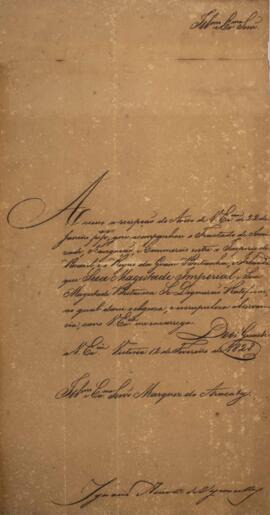 Illmo. e Exmo. Senr.
Accuso a recepção do Aviso de V. Exa. de 22 de
Janeiro p.p. que acompanhou o Tractado de Ami
zade, Navegação, e Commercio entre o Imperio do
Brasil, e o Reyno da Gram Bretanha,
que Sua Magestade Imperial, e Sua
Magestade Britanica Se Dignarão Ratificar,
ao qual darei a e escrupulosa observan
cia, como V. Exa. me encarrega.
Deos Guarde
a V. Exa. Victoria 12 de Fevereiro de 1828
Illmo. e Exmo. Senr. Marquez do Aracaty.
Ignacio